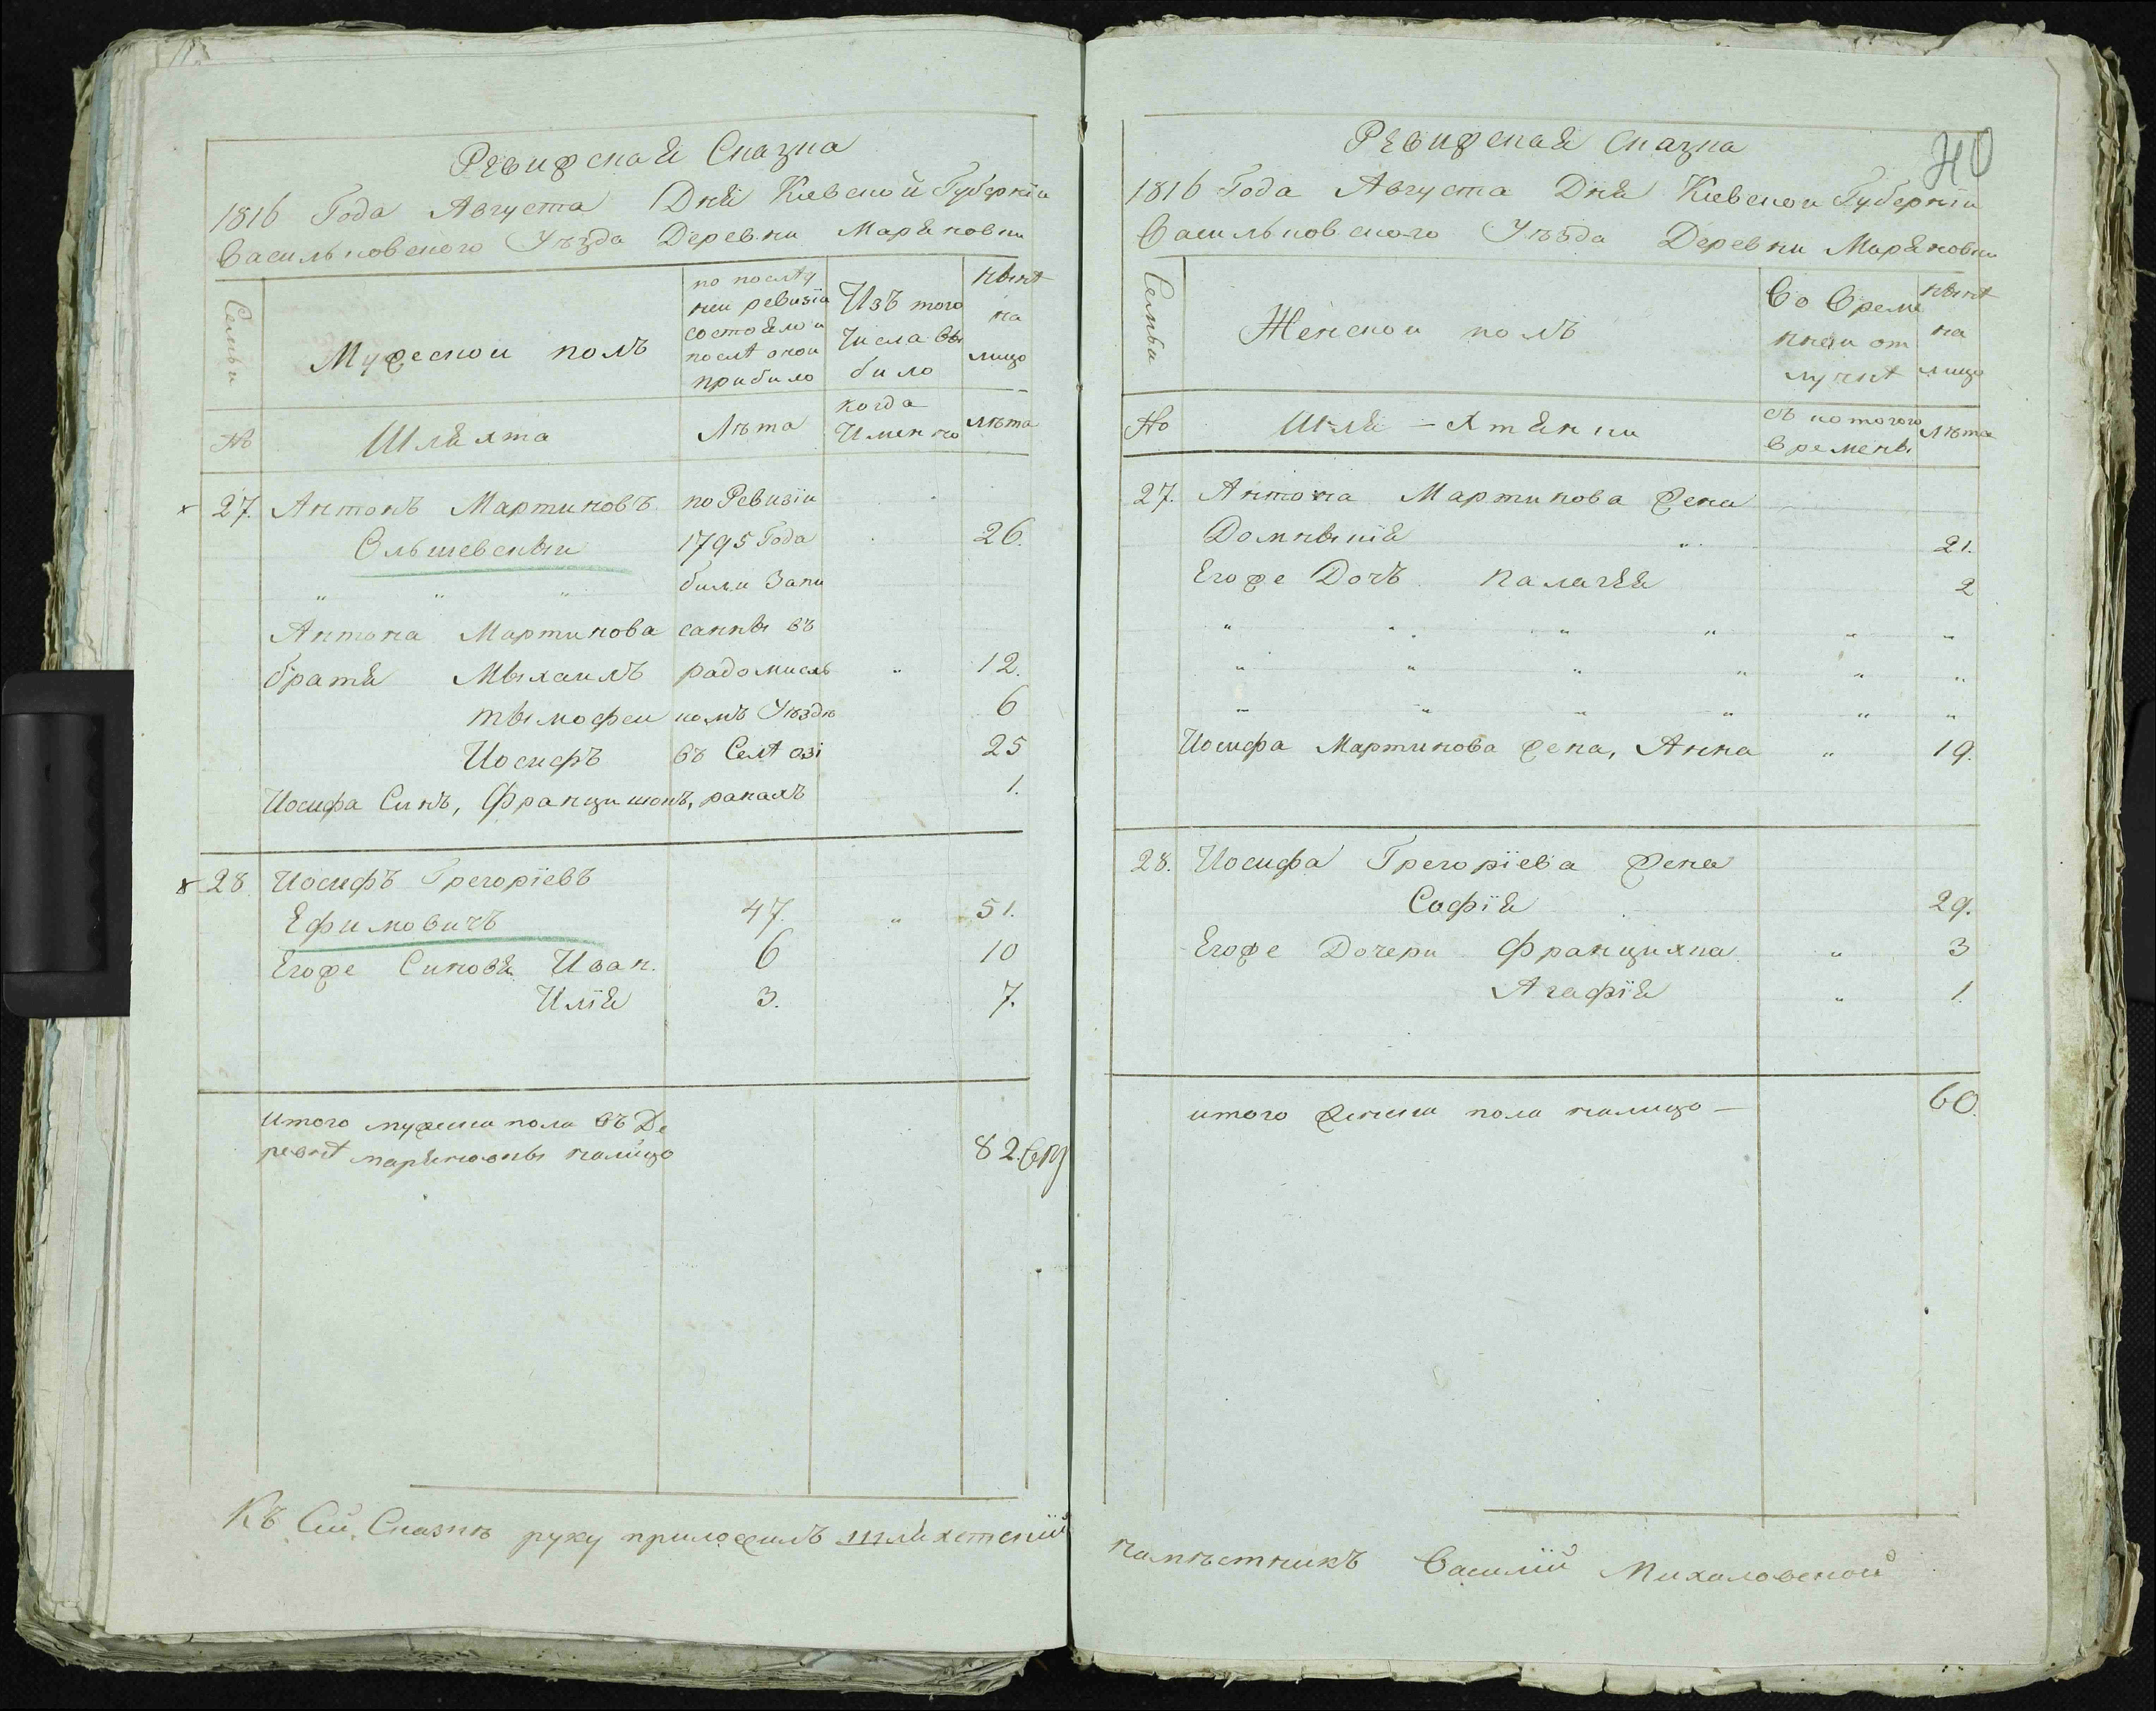 Ревижская Сказка
1816 Года Августа Дня Киевской Губернїи
Васильковского Уѣзда Деревни Маряновки
Семьи
Мужескои полъ
по послѣд
неи ревизїи
состояло и
послѣ онои
прибило
Изъ того
Числа вы
било
нынѣ
на
лицо
№
Шляхта
Лѣта
когда
Имянно
лѣта
27. Антонъ Мартиновъ по Ревизїи
Ольшевскыи 1795 Года 26.
" " " были Запи
Антона Мартинова санны въ
братя Мыхаилъ радомисль " 12.
тымофеи комъ Уѣздѣ 6
Иосифъ въ Селѣ озі 25
Иосифа Синъ, Францишокъ, ранахъ 1.
28 Иосифъ Грегорїевъ
Ефимовичъ 47. " 51.
Егоже Синовя Иван. 6 10
Илїя 3. 7.
Итого мужеска пола въ Де
ревнѣ маряновкы налицо 82.
Къ Сій Сказкѣ руку приложилъ шляхетскїй
40
Ревижская Сказка
1816 Года Августа Дня Киевскои Губернїи
Васильковского Уѣзда Деревни Маряновки
Семьи
Женскои полъ
Во Време
ннои от
лучкѣ
нынѣ
на
лицо
№
Шля-хтянки
съ которого
времены
Лѣта
27. Антона Мартинова жена
Домныкїя " 21.
Егоже Дочъ Палагея 2
" " " " " "
" " " " " "
" " " " " "
Иосифа Мартинова жена, Анна " 19.
28. Иосифа Грегорїева жена
Софїя 29.
Егоже Дочери Франциxна " 3
Агафїя " 1.
итого женска пола налицо — 60.
намѣстникъ Василїй Михаловской